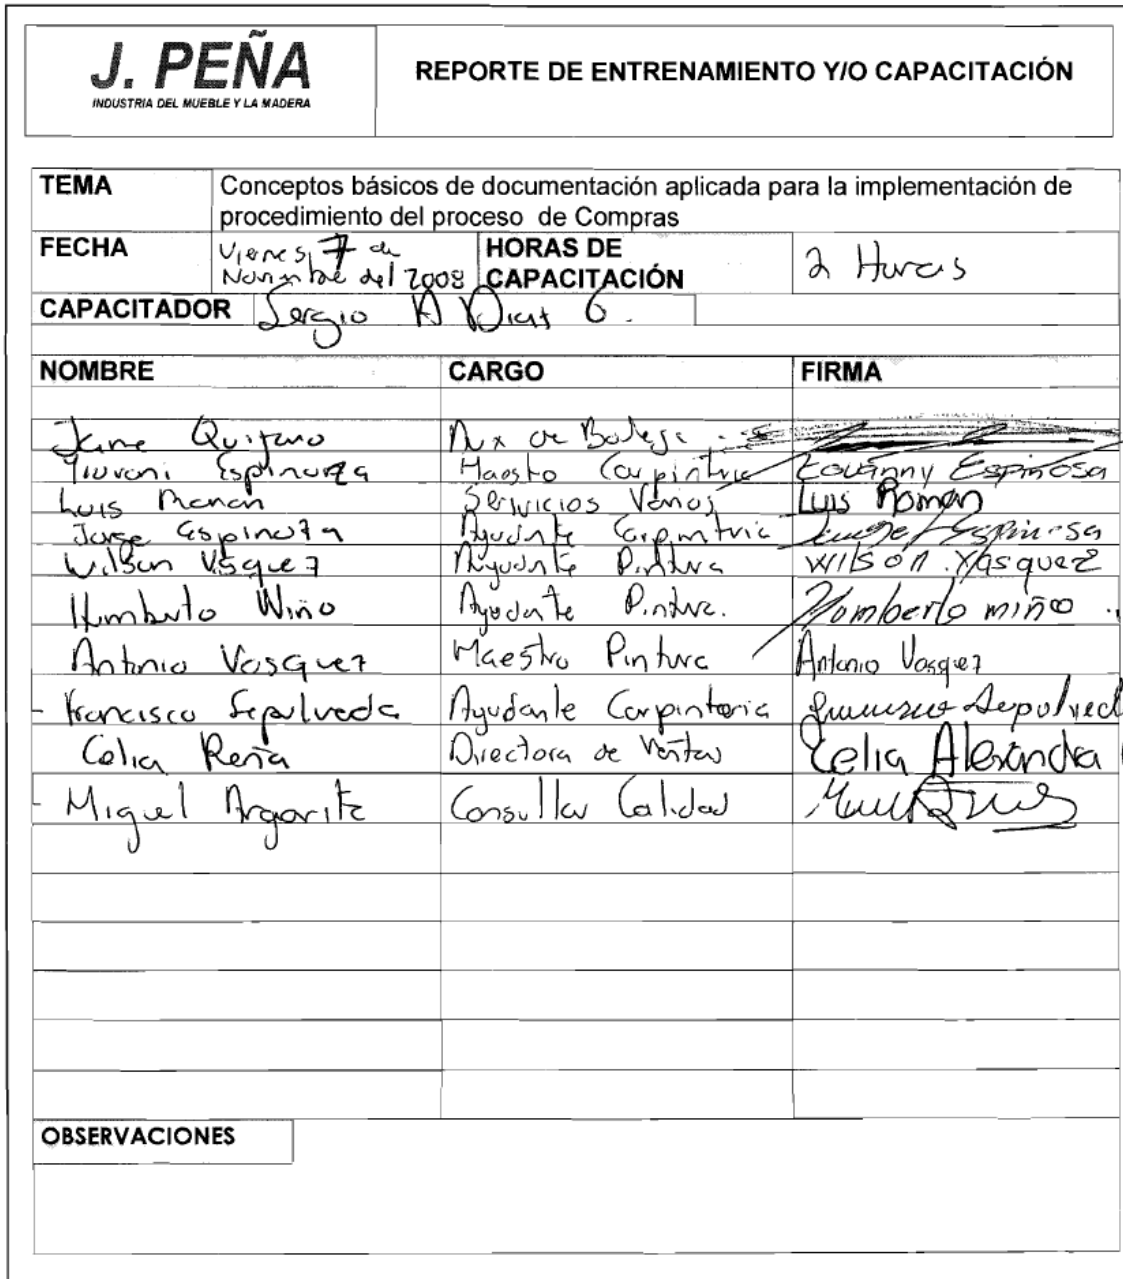 J. PEÑA
INDUSTRIA DEL MUEBLE Y LA MADERA
REPORTE DE ENTRENAMIENTO Y/O CAPACITACIÓN
TEMA Conceptos básicos de documentación aplicada para la implementación de
procedimiento del proceso de Compras
FECHA Viernes 7 de
Noviembre del 2008
HORAS DE
CAPACITACIÓN
2 Horas
CAPACITADOR Sergio A G.
NOMBRE CARGO FIRMA
Quijano Aux de Bodega
Giovani Espinoza Maestro Carpintria Espinosa
Luis Servicios Varios Luis Roman
Jorge Espinoza Ayudante Carpintria Jorge Espinosa
Wilson Vasquez Ayudante Pintura Wilson Vasquez
Humberto Miño Ayudante Pintura. Homberto miño
Antonio Vasquez Maestro Pintura Antonio Vasquez
- Francisco Sepulveda Ayudante Carpinteria Sepulved
Celia Peña Directora de Ventas Celia Alexandra
- Miguel Argarita Consultor Calidad
OBSERVACIONES